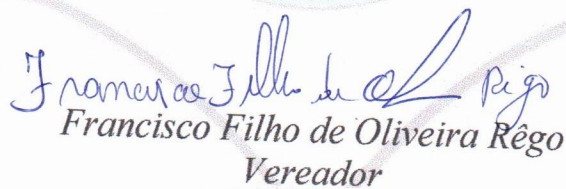 Francisco Filho de Ol Rêgo
Francisco Filho de Oliveira Rêgo
Vereador